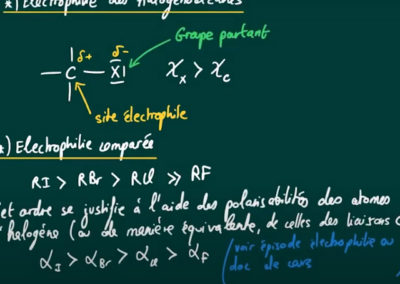 *) Electrophilie des halogénoalcanes
Grpe partant
δ+ δ-
— C — X| χx > χc
site électrophile
*) Electrophilie comparée
RI > RBr > RCl ≫ RF
et ordre se justifie à l'aide des polarisabilités des atomes
d'halogène (ou de manière équivalente, de celles des liaisons C
αI > αBr > αCl > αF
(voir épisode électrophilie ou
doc de cours